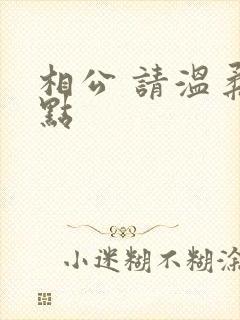 相公 請溫柔
點
小迷糊不糊涂